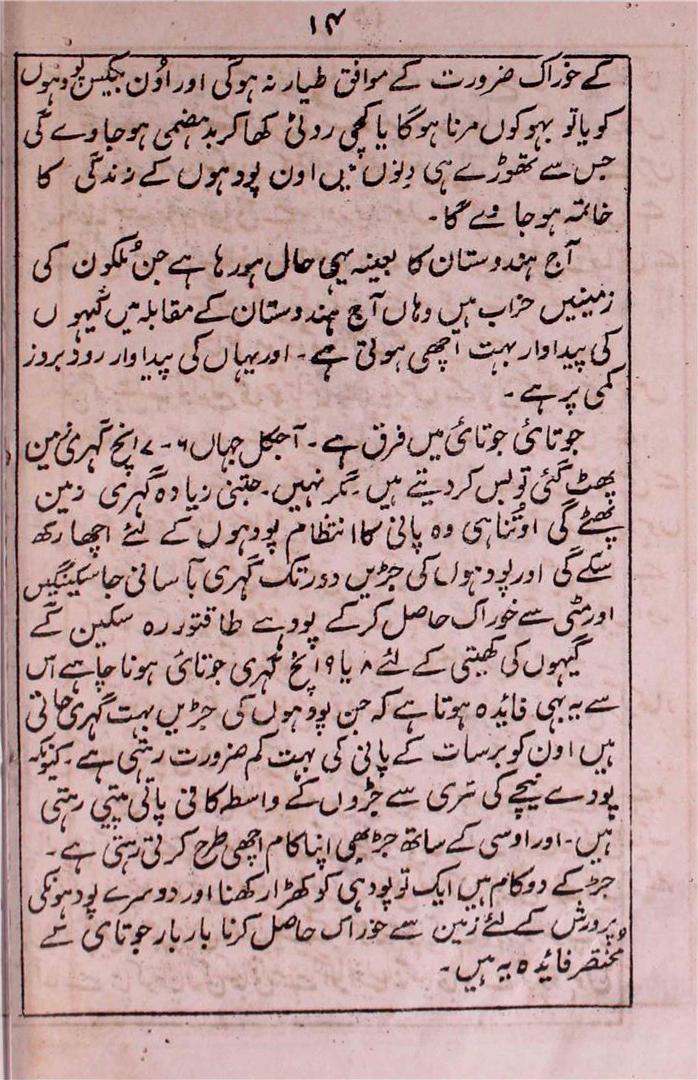 ۱۴
کے خوراک ضرورت کے موافق طیار نہ ہوگی اور اوُن بیکس پودہوں
کو یا تو بہوکوں مرنا ہوگا یا کچی روٹی کھا کر بدہضمی ہوجاوے گی
جس سے تھوڑے ہی دِنوں میں اون پودہوں کے زندگی کا
خاتمہ ہوجاوے گا۔
آج ہندوستان کا بعینہ یہی حال ہورہا ہے جن مُلکون کی
زمینیں خراب ہیں وہاں آج ہندوستان کے مقابلہ میں گیہوں
کی پیداوار بہت اچھی ہوتی ہے۔ اور یہاں کی پیداوار روز بروز
کمی پر ہے۔
جوتائی جوتائی میں فرق ہے۔ آجکل جہاں ۶-۷ اِنچ گہری زمین
پھٹ گئی تو بس کردیتے ہیں۔ مگر نہیں۔ جتنی زیادہ گہری زمین
پھٹے گی اوُتنا ہی وہ پانی کا انتظام پودہوں کے لئے اچھا رکھ
سکے گی اور پودہوں کی جڑیں دور تک گہری بآسانی جاسکینگیں
اور مٹی سے خوراک حاصل کرکے پودہے طاقتور رہ سکین گے
گیہوں کی کھیتی کے لئے ۸ یا ۹ اِنچ گہری جوتائی ہونا چاہے اس
سے یہ بہی فائدہ ہوتا ہے کہ جن پودہوں کی جڑیں بہت گہری جاتی
ہیں اون کو برسات کے پانی کی بہت کم ضرورت رہتی ہے۔ کیونکہ
پودے نیچے کی تری سے جڑوں کے واسطہ کافی پاتی رہتی
ہیں۔ اور اوسی کے ساتھ جڑ بھی اپنا کام اچھی طرح کرتی رہتی ہے۔
جڑ کے دو کام ہیں ایک تو پودہی کو کھڑا رکھنا اور دوسرے پودہونکی
پرورش کے لئے زمین سے خوراک حاصل کرنا بار بار جوتائی کے
مُختصر فائدہ یہ ہیں۔